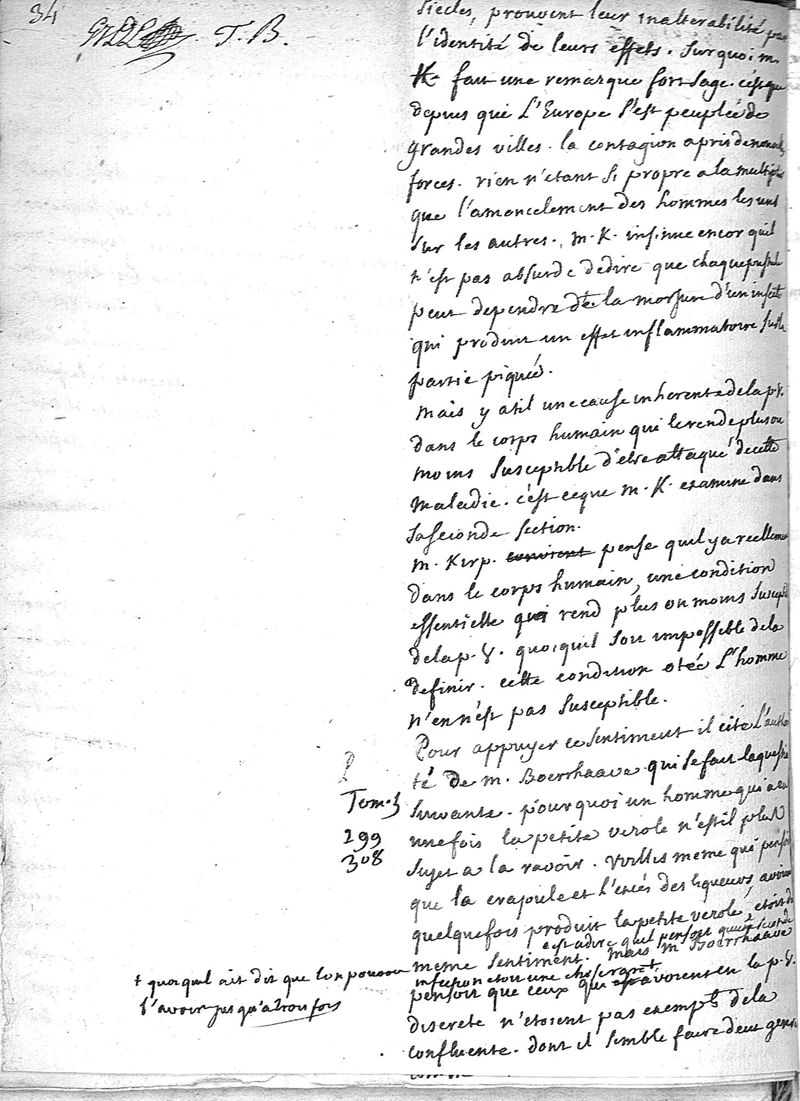 34
T. B.
siecles, prouvent leur inalterabilité par
l'identité de leurs effets. surquoi m.
K. fait une remarque fort sage. c'est que
depuis que L'Europe s'est peuplée de
grandes villes. la contagion a pris de nouvelles
forces. rien n'etant si propre a la multiplier
que l'amoncelement des hommes les uns
sur les autres. m. K. insinue encor quil
n'est pas absurde dedire que chaque pustule
peut dependre de la morsure d'un insecte
qui produit un effet inflammatoire sur la
partie piquée.
mais y atil une cause inherente de la p. v.
dans le corps humain qui le rende plus ou
moins susceptible d'etre attaqué de cette
maladie. c'est ce que m. K. examine dans
sa seconde section.
m. Kirp. convient pense quil y a reellement
dans le corps humain, une condition
essentielle qui rend plus ou moins suscepti
de la p. v. quoiquil soit impossible de la
definir. cette condition otée L'homme
n'en n'est pas susceptible.
Pour appuyer ce sentiment il cite l'autori
té de m. Boerrhaave qui se fait la question
suivante. pourquoi un homme qui a eu
une fois la petite verole n'est il plus
sujet a la ravoir. Willis meme qui pensoit
que la crapule et l'excés des liqueurs avoient
quelquefois produit la petite verole, etoit du
meme sentiment.
est adire quil pensoit qu'une seconde
infection etoit une chose rare +
mais m. Boerrhaave
pensoit que ceux qui avoient eu la p. v.
discrete n'etoient pas exempts de la
confluente. dont il semble faire deux genres
Tom. 3
299
308
+ quoiquil ait dit que l'on pouvoit
l'avoir jusqu'a trois fois